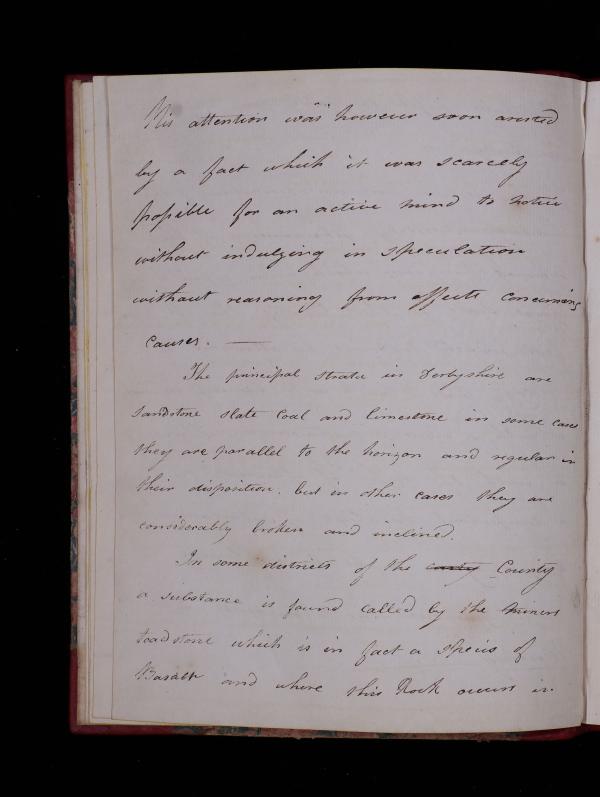 His attention was however soon arrested
by a fact which it was scarcely
possible for an active mind to notice
without indulging in speculation
without reasoning from effects concerning
causes. —
The principal strata in Derbyshire are
sandstone slate coal and limestone in some cases
they are parallel to the horizon and regular in
their disposition. but in other cases they are
considerably broken and inclined.
In some districts of the county County
a substance is found called by the miners
toadstone which is in fact a species of
Basalt and where this Rock occurs in